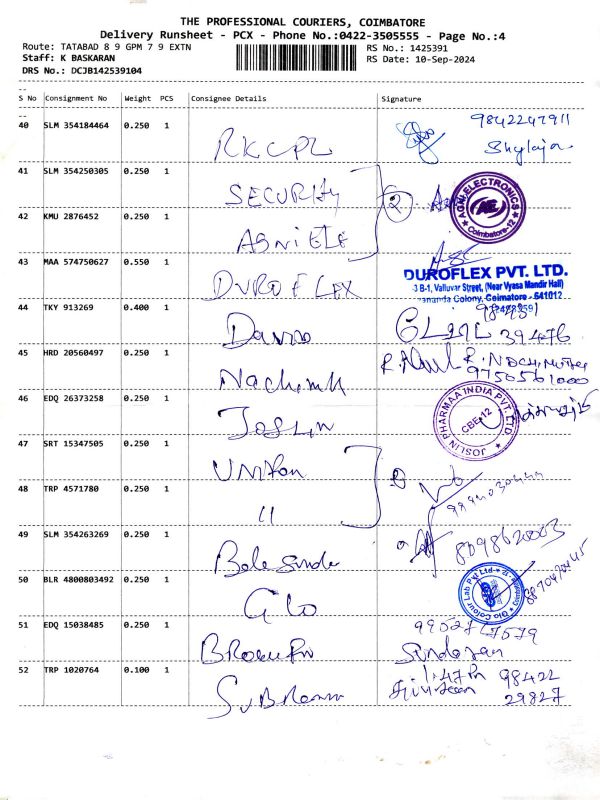 THE PROFESSIONAL COURIERS, COIMBATORE
Delivery Runsheet - PCX - Phone No.:0422-3505555 - Page No.:4
Route: TATABAD 8 9 GPM 7 9 EXTN RS No.: 1425391
Staff: K BASKARAN RS Date: 10-Sep-2024
DRS No.: DCJB142539104
S No Consignment No Weight PCS Consignee Details Signature
40 SLM 354184464 0.250 1 9842247911
RKCPL Shylaja
41 SLM 354250305 0.250 1
SECURITY 2 AGNI ELECTRONICS
Coimbatore-12
42 KMU 2876452 0.250 1
AGNI ELE
43 MAA 574750627 0.550 1
DUROFLEX DUROFLEX PVT. LTD.
3 B-1, Valluvar Street, (Near Vyasa Mandir Hall)
Colony, Coimatore - 641012
44 TKY 913269 0.400 1
39476
45 HRD 20560497 0.250 1
9750561000
46 EDQ 26373258 0.250 1
JOSLIN JOSLIN PHARMAA INDIA PVT. LTD
CBE-12
47 SRT 15347505 0.250 1
48 TRP 4571780 0.250 1
11
49 SLM 354263269 0.250 1
8098620003
50 BLR 4800803492 0.250 1
Glo Glo Colour Lab Pvt Ltd
51 EDQ 15038485 0.250 1
Sundaran
52 TRP 1020764 0.100 1 1.47 Pm 98422
29827